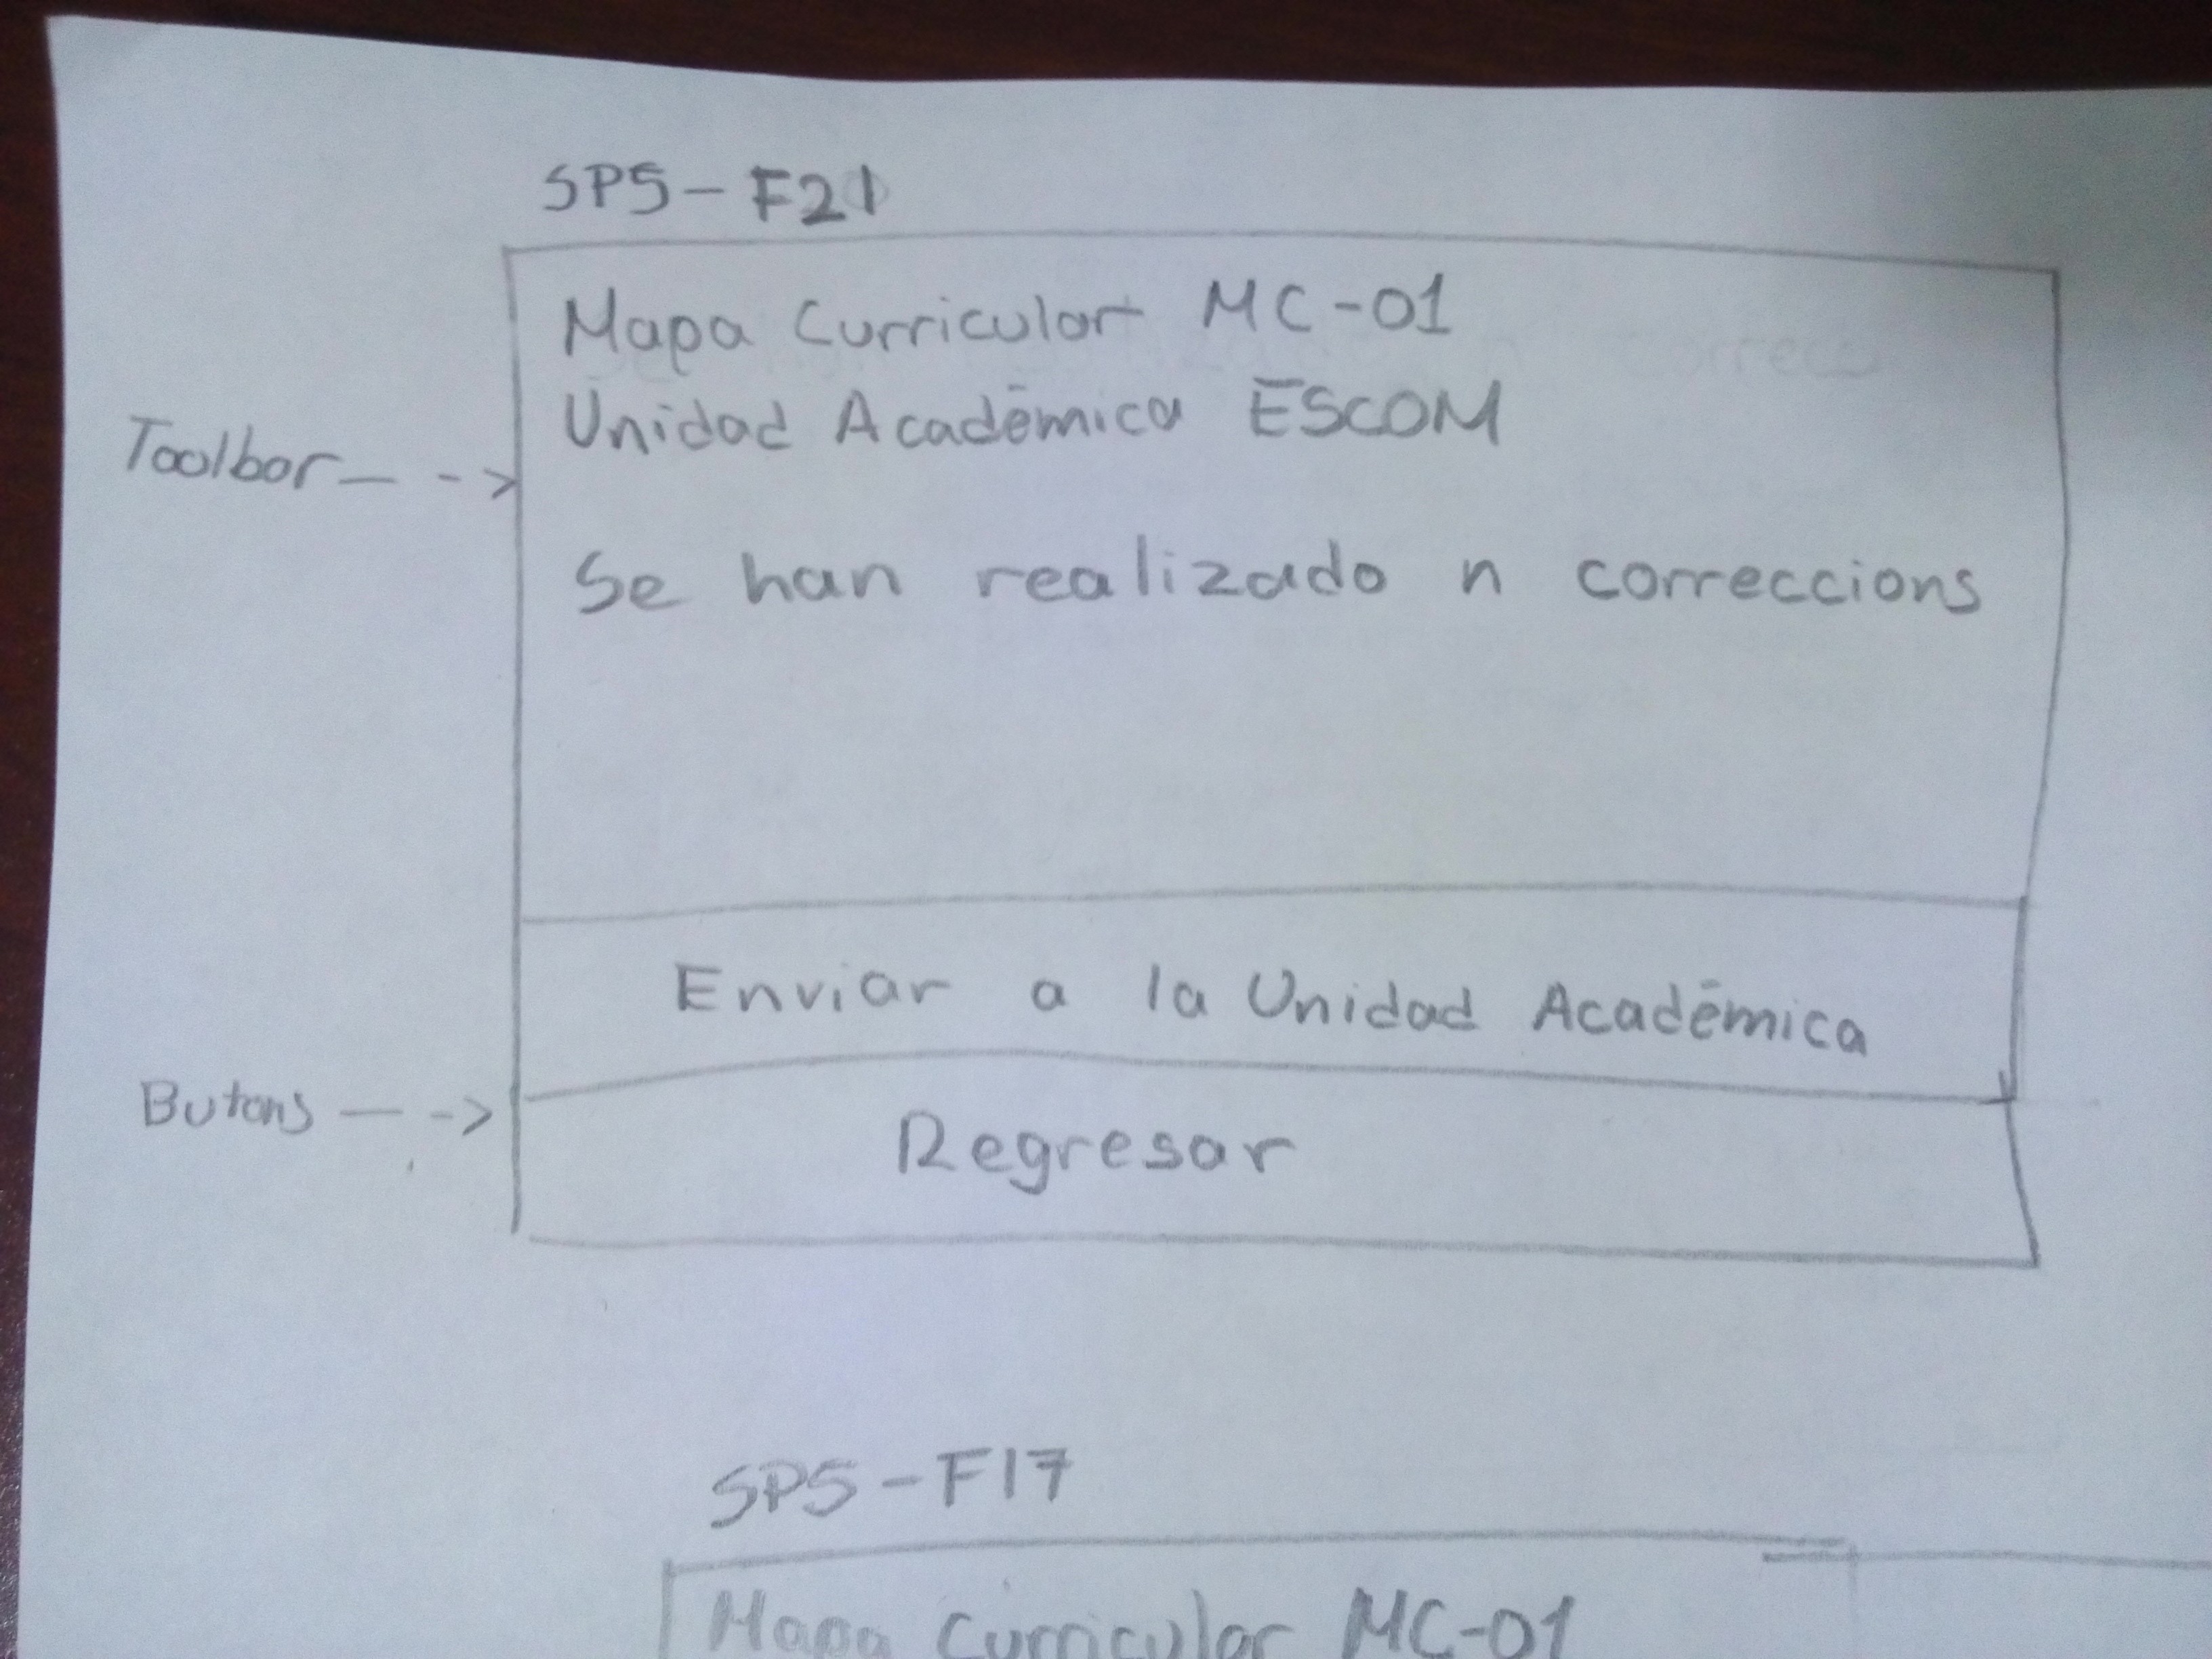 SP5-F21
Mapa Curricular MC-01
Unidad Académica ESCOM
Toolbar
Se han realizado n correccions
Enviar a la Unidad Académica
Butons
Regresar
SP5-F17
Mapa Curricular MC-01